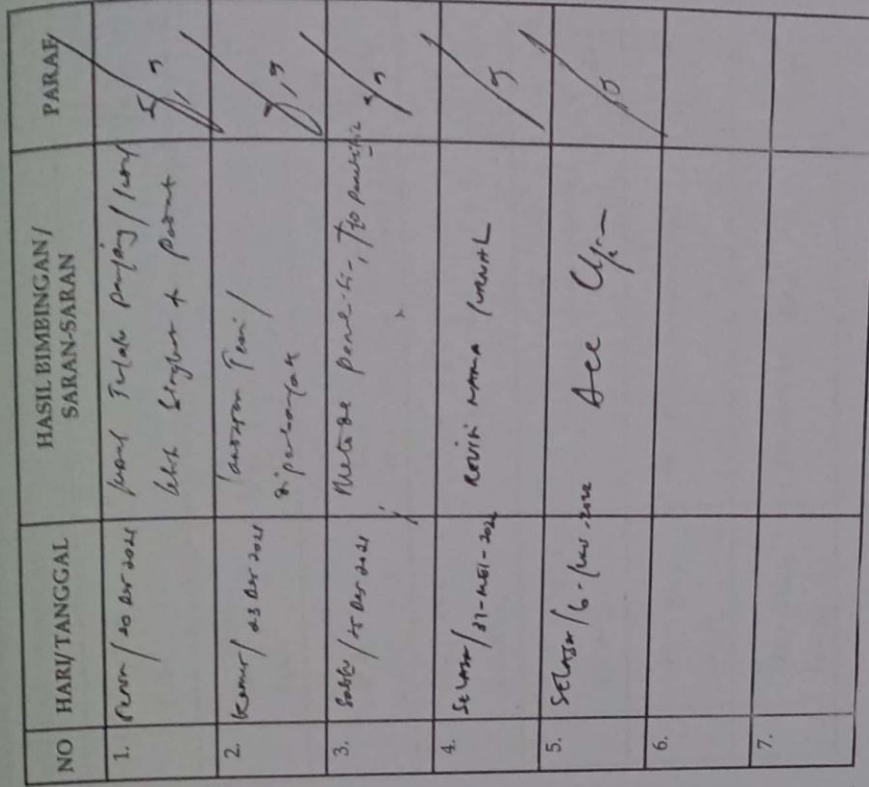 NO HARI/TANGGAL HASIL BIMBINGAN/ SARAN-SARAN PARAF
1. Senin / 20 Des 2021 Judul Terlalu Panjang /
lebih singkat + padat
2. Kamis / 23 Des 2021 Landasan Teori /
diperbanyak
3. Sabtu / 25 Des 2021 Metode
4. SELASA / 31-MEI-2022 REVISI NAMA JURNAL
5. SELASA / 6-Juni-2022 Acc
6.
7.